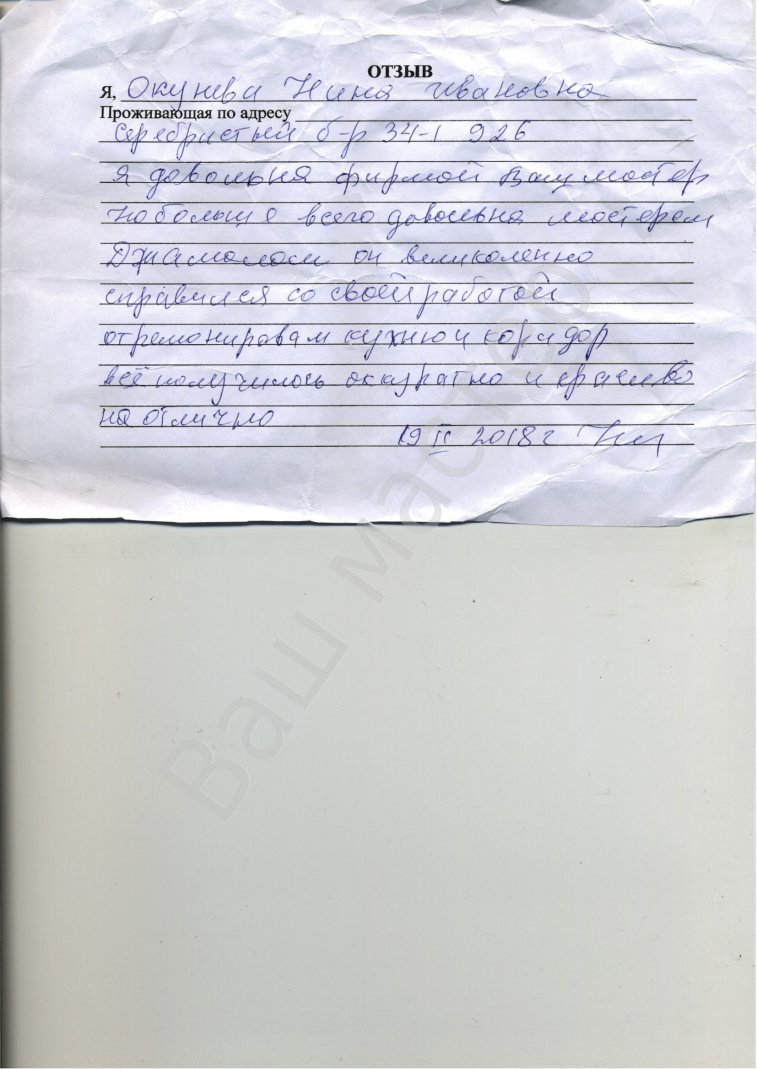 ОТЗЫВ
Я, Окунева Нина Ивановна
Проживающая по адресу
Серебристый б-р 34-1 926
Я довольна фирмой Ваш мастер
но больше всего довольна мастером
Джамалом он великоленно
справился со своей работой
отремонировал кухню и коридор
всё получилось аккуратно и красиво
на отлично
19 II 2018 г
Ваш мастер